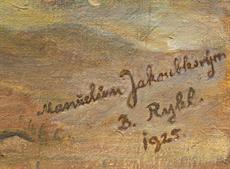 Manželům Jakoubkovým
B. Rybl.
1925.